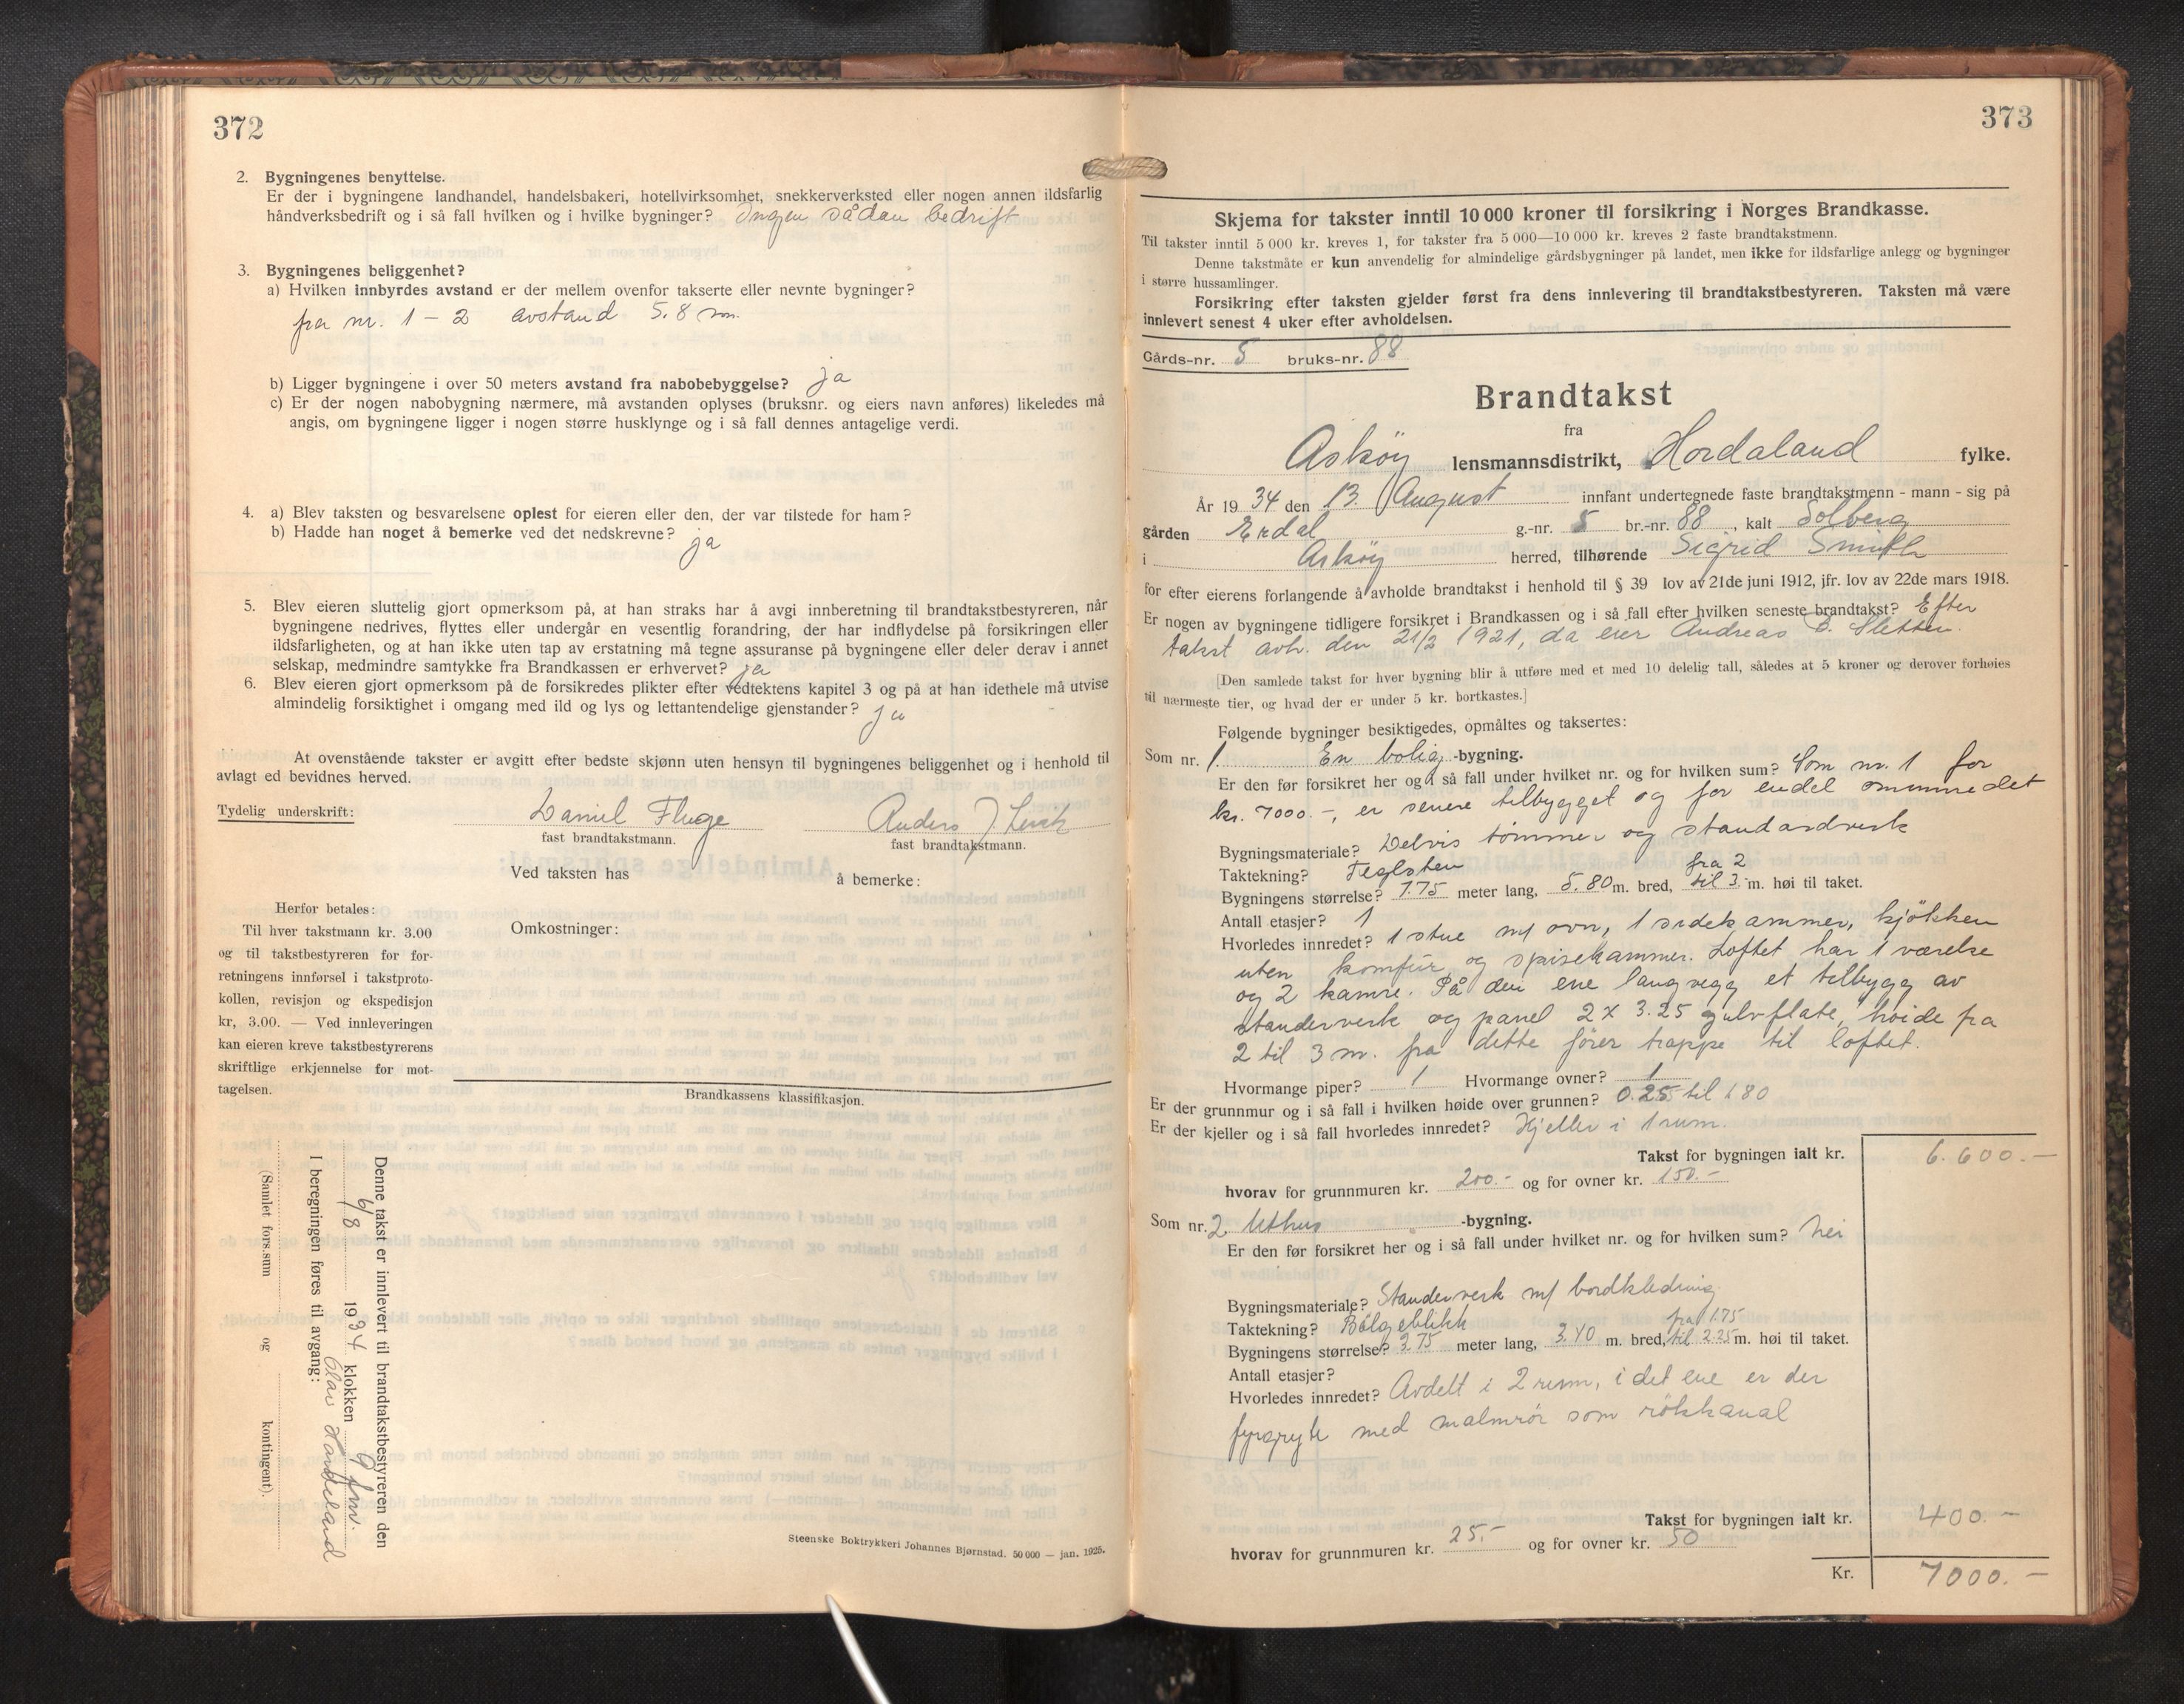 372
2. Bygningenes benyttelse.
Er der i bygningene landhandel, handelsbakeri, hotellvirksomhet, snekkerverksted eller nogen annen ildsfarlig
håndverksbedrift og i så fall hvilken og i hvilke bygninger? Ingen sådan bedrift
3. Bygningenes beliggenhet?
a) Hvilken innbyrdes avstand er der mellem ovenfor takserte eller nevnte bygninger?
fra nr. 1 – 2 avstand 5.8 m.
b) Ligger bygningene i over 50 meters avstand fra nabobebyggelse? ja
c) Er der nogen nabobygning nærmere, må avstanden oplyses (bruksnr. og eiers navn anføres) likeledes må
angis, om bygningene ligger i nogen større husklynge og i så fall dennes antagelige verdi.
4. a) Blev taksten og besvarelsene oplest for eieren eller den, der var tilstede for ham?
b) Hadde han noget å bemerke ved det nedskrevne? ja
5. Blev eieren sluttelig gjort opmerksom på, at han straks har å avgi innberetning til brandtakstbestyreren, når
bygningene nedrives, flyttes eller undergår en vesentlig forandring, der har indflydelse på forsikringen eller
ildsfarligheten, og at han ikke uten tap av erstatning må tegne assuranse på bygningene eller deler derav i annet
selskap, medmindre samtykke fra Brandkassen er erhvervet? ja
6. Blev eieren gjort opmerksom på de forsikredes plikter efter vedtektens kapitel 3 og på at han idethele må utvise
almindelig forsiktighet i omgang med ild og lys og lettantendelige gjenstander? ja
At ovenstående takster er avgitt efter bedste skjønn uten hensyn til bygningenes beliggenhet og i henhold til
avlagt ed bevidnes herved.
Tydelig underskrift: Daniel Fluge Anders J
fast brandtakstmann. fast brandtakstmann.
Ved taksten has å bemerke:
Herfor betales:
Til hver takstmann kr. 3.00
og til takstbestyreren for for-
retningens innførsel i takstproto-
kollen, revisjon og ekspedisjon
kr, 3.00. — Ved innleveringen
kan eieren kreve takstbestyrerens
skriftlige erkjennelse for mot-
tagelsen.
Omkostninger:
Brandkassens klassifikasjon.
Denne takst er innlevert til brandtakstbestyreren den
6/8 1934 klokken 9 fm.
Olav Handeland
I beregningen føres til avgang:
(Samlet fors.sum og kontingent).
Steenske Boktrykkeri Johannes Bjørnstad. 50 000 — jan. 1925.
373
Skjema for takster inntil 10 000 kroner til forsikring i Norges Brandkasse.
Til takster inntil 5 000 kr. kreves 1, for takster fra 5 000—10 000 kr. kreves 2 faste brandtakstmenn.
Denne takstmåte er kun anvendelig for almindelige gårdsbygninger på landet, men ikke for ildsfarlige anlegg og bygninger
i større hussamlinger.
Forsikring efter taksten gjelder først fra dens innlevering til brandtakstbestyreren. Taksten må være
innlevert senest 4 uker efter avholdelsen.
Gårds-nr. 5 bruks-nr. 88
Brandtakst
fra
Askøy lensmannsdistrikt, Hordaland fylke.
År 1934 den 13. August innfant undertegnede faste brandtakstmenn - mann - sig på
gården Erdal g.-nr. 5 br.-nr. 88, kalt Solberg
i Askøy herred, tilhørende Sigrid Smith
for efter eierens forlangende å avholde brandtakst i henhold til § 39 lov av 21de juni 1912, jfr. lov av 22de mars 1918.
Er nogen av bygningene tidligere forsikret i Brandkassen og i så fall efter hvilken seneste brandtakst? Efter
takst avh. den 21/2 1921, da eier Andreas B. Sletten.
[Den samlede takst for hver bygning blir å utføre med et med 10 delelig tall, således at 5 kroner og derover forhøies
til nærmeste tier, og hvad der er under 5 kr. bortkastes.]
Følgende bygninger besiktigedes, opmåltes og taksertes:
Som nr. 1. En bolig -bygning.
Er den før forsikret her og i så fall under hvilket nr. og for hvilken sum? Som nr. 1 for
kr. 7000.-, er senere tilbygget og for endel ominnredet
Bygningsmateriale? Delvis tømmer og standardverk
Taktekning? Teglsten
Bygningens størrelse? 7.75 meter lang, 5.80 m. bred, fra 2 til 3 m. høi til taket.
Antall etasjer? 1
Hvorledes innredet? 1 stue m/ ovn, 1 sidekammer, kjøkken
uten komfur og spisekammer. Loftet har 1 værelse
og 2 kamre. På den ene langvegg et tilbygg av
standerverk og panel 2 x 3.25 gulvflate, høide fra
2 til 3 m. fra dette fører trappe til loftet.
Hvormange piper? 1 Hvormange ovner? 1
Er der grunnmur og i så fall i hvilken høide over grunnen? 0.25 til 1.80
Er der kjeller og i så fall hvorledes innredet? Kjeller i 1 rum.
Takst for bygningen ialt kr. 6.600.-
hvorav for grunnmuren kr. 200.- og for ovner kr. 150.-
Som nr. 2. Uthus -bygning.
Er den før forsikret her og i så fall under hvilket nr. og for hvilken sum? nei
Bygningsmateriale? Standerverk m/ bordkledning
Taktekning? Bølgeblikk
Bygningens størrelse? 3.75 meter lang, 3.40 m. bred, fra 1.75 til 2.25 m. høi til taket.
Antall etasjer?
Hvorledes innredet? Avdelt i 2 rum, i det ene er der
fyrgryte med malmrør som røkkanal
Takst for bygningen ialt kr. 400.-
hvorav for grunnmuren kr. 25.- og for ovner kr. 50
Kr. 7000.-